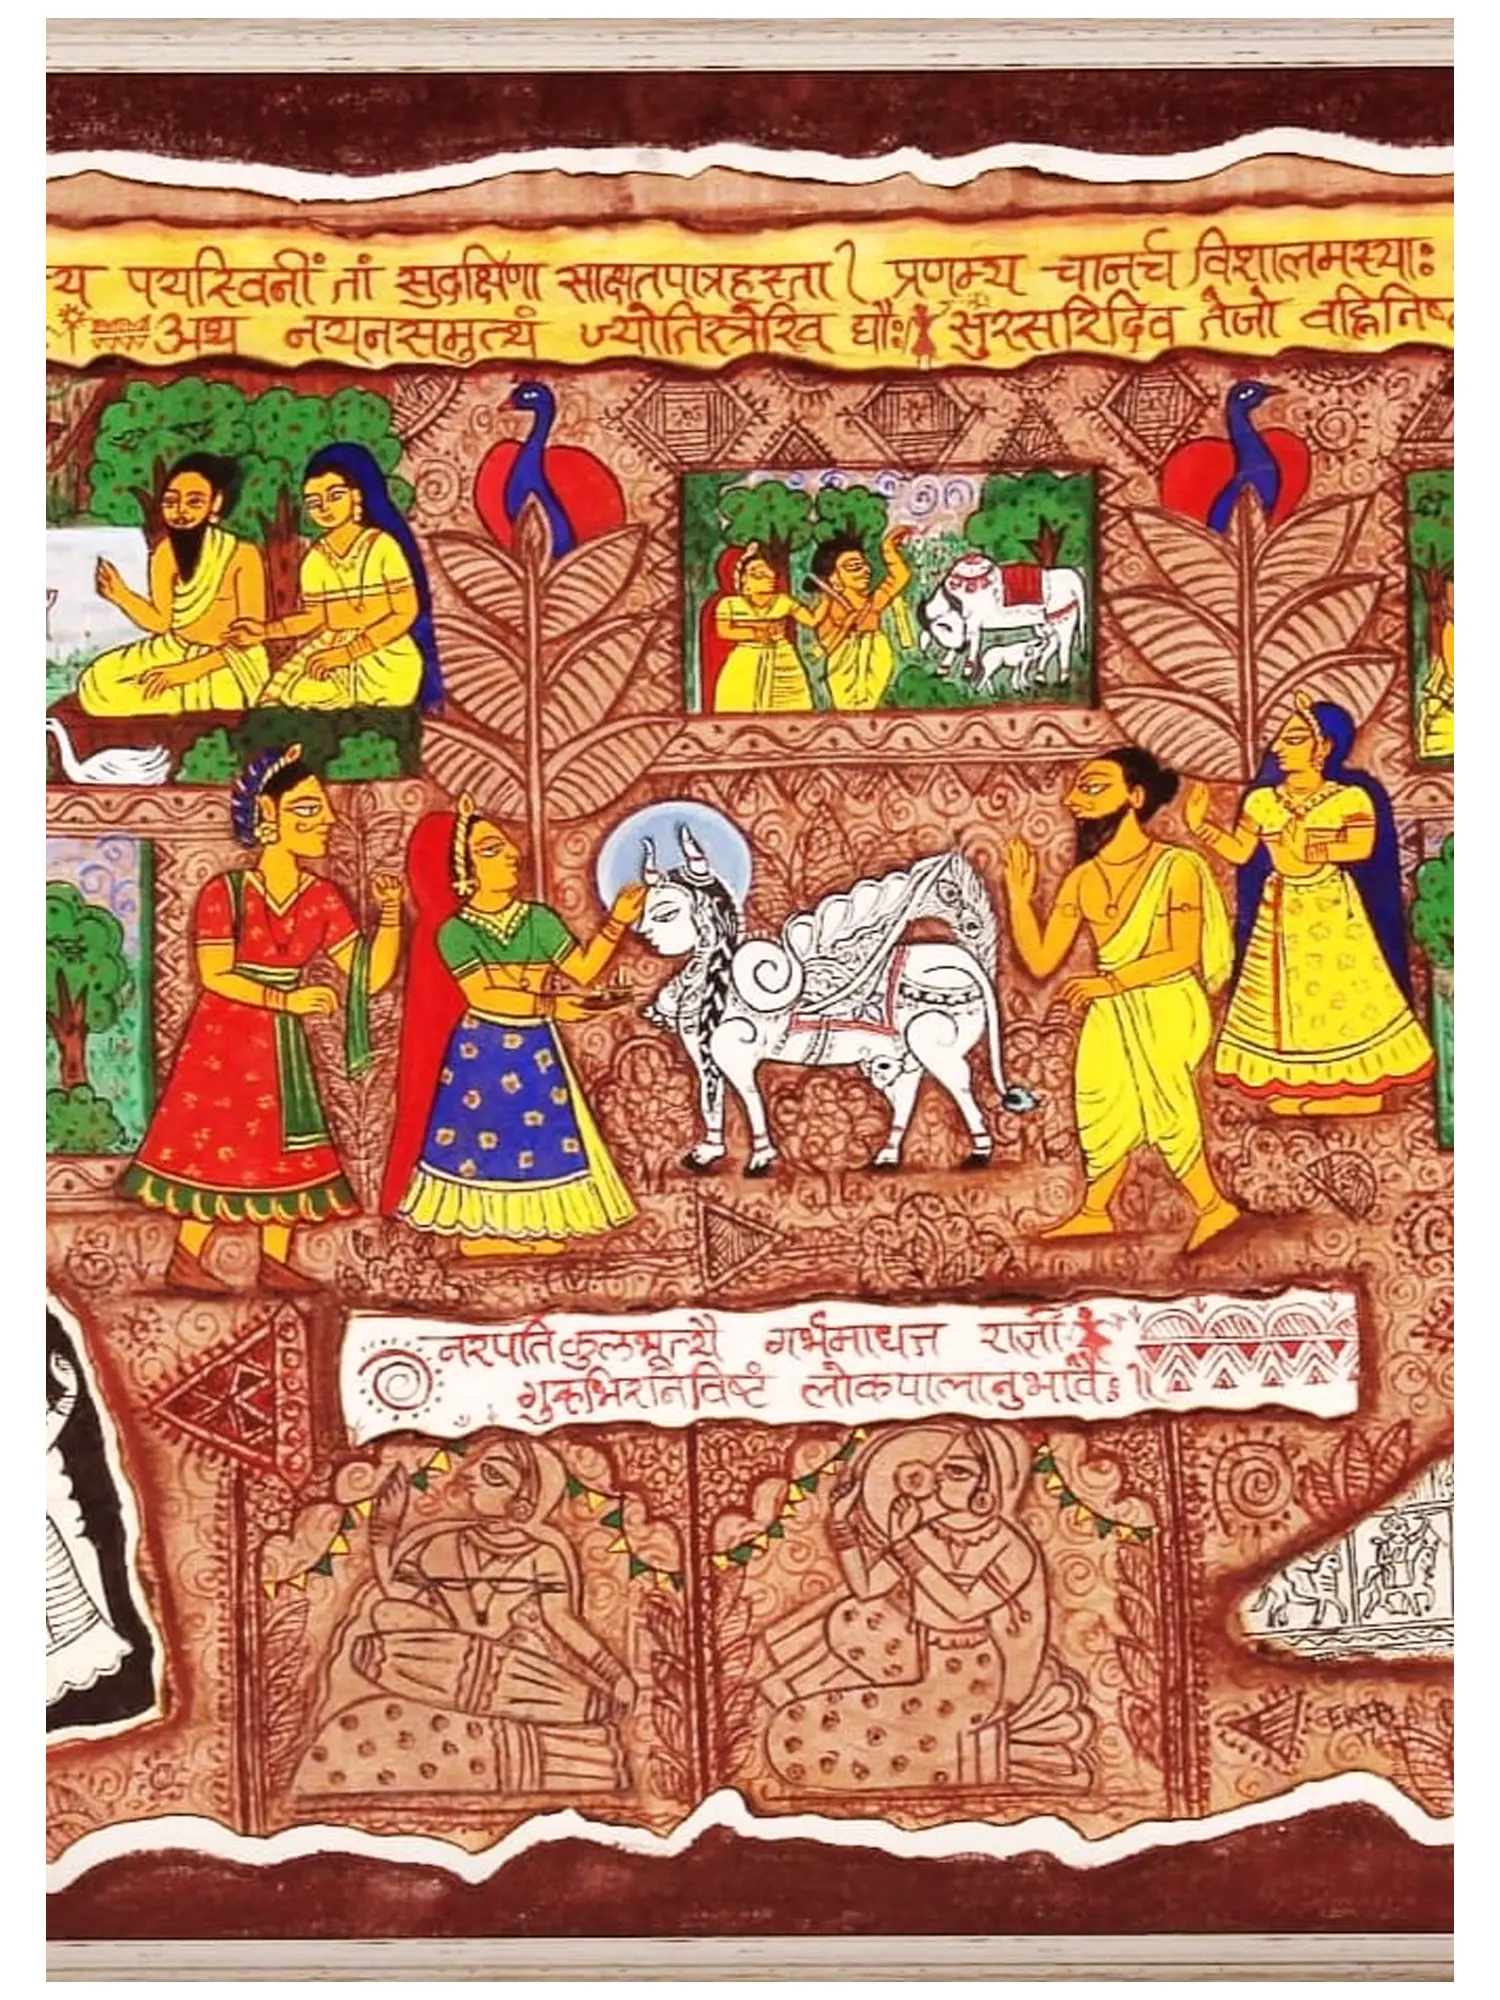 य पयस्विनीं तां सुदक्षिणा साक्षतपात्रहस्ता। प्रणम्य चानर्च विशालमस्याः
अथ नयनसमुत्थं ज्योतिस्त्रेरिव द्यौः। सुरसरिदिव तेजो वह्निनिष्
नरपतिकुलभूत्यै गर्भमाधत्त राज्ञी
गुरुभिरभिनिविष्टं लोकपालानुभावैः॥